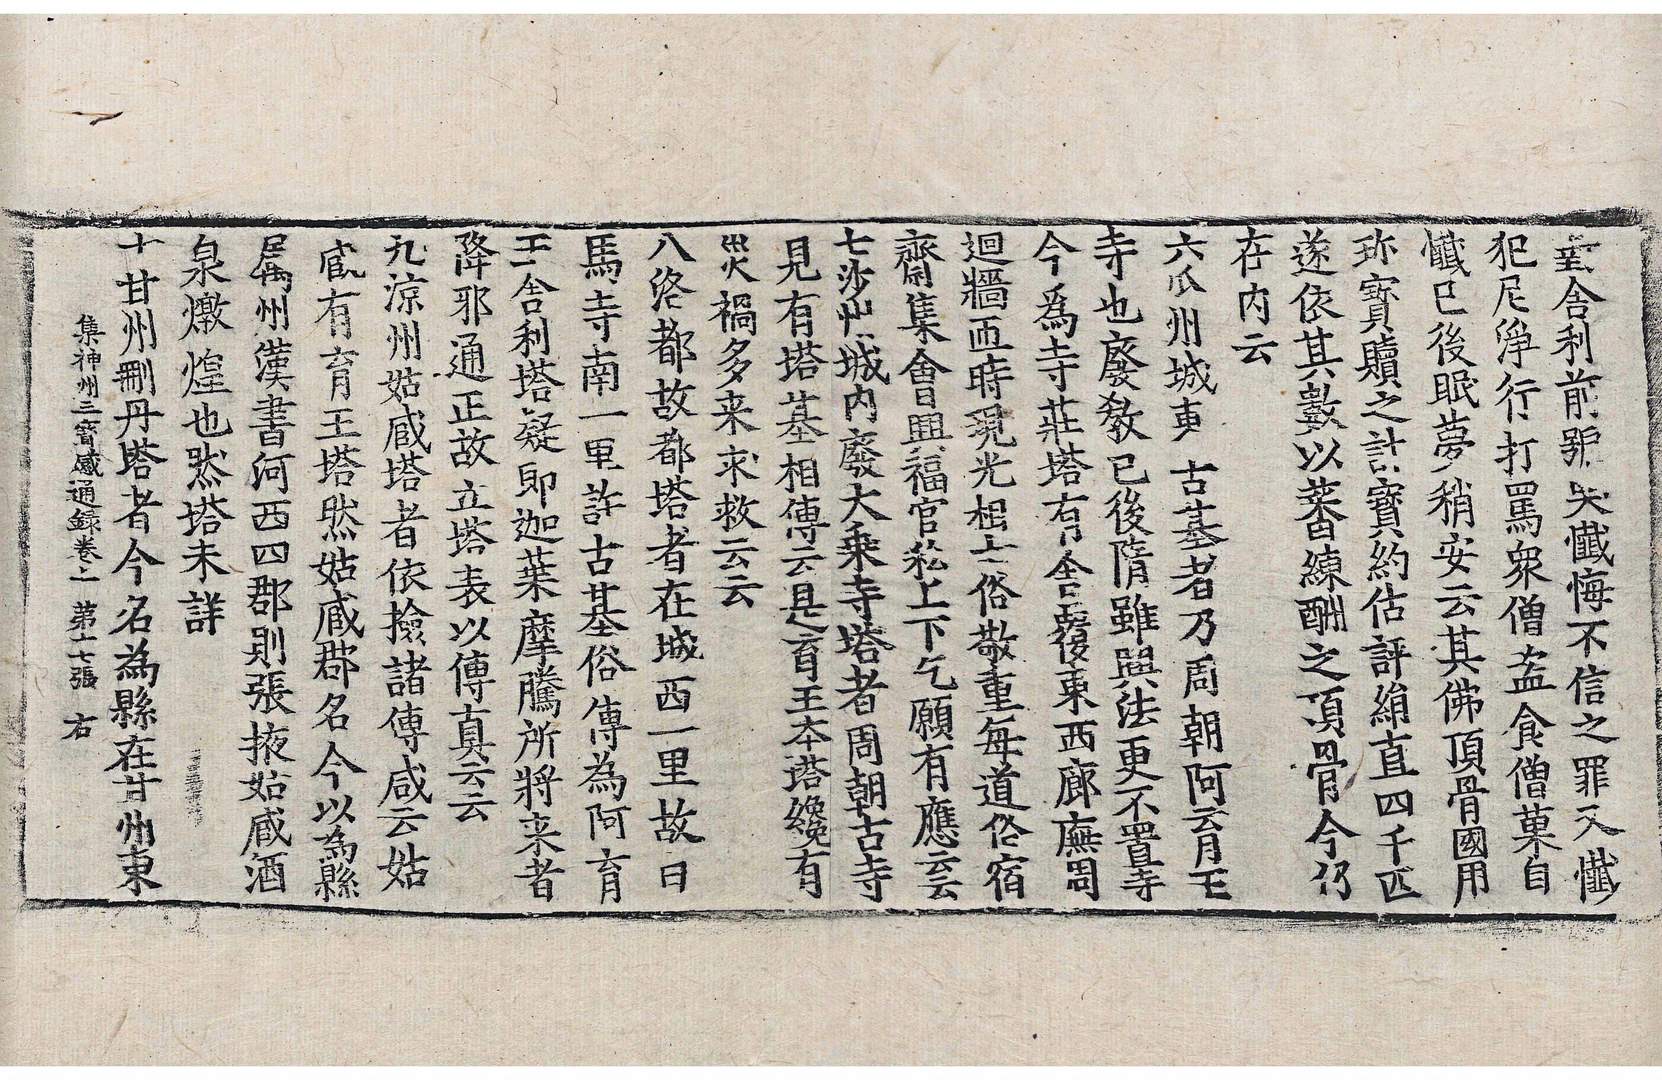 對舍利前號哭懺悔不信之罪又懺
犯尼淨行打罵衆僧盗食僧菓自
懺已後眠夢稍安云其佛頂骨國用
珎寶贖之計寶約估評絹直四千匹
遂依其數以葉自練酬之頂骨今仍
在内云
六瓜州城東 古基者乃周朝阿育王
寺也廢教已後隋雖興法更不置寺
今爲寺莊塔有舍覆東西廊廡周
迴牆匝時現光相士俗敬重每道俗宿
齋集會興福官私上下乞願有應云云
七沙州城内廢大乗寺塔者周朝古寺
見有塔基相傳云是育王本塔纔有
災禍多来求救云云
八洛都故都塔者在城西一里故曰
馬寺南一里許古基俗傳為阿育
王舍利塔疑即迦葉摩騰所將来者
降邪通正故立塔表以傳真云云
九涼州姑臧塔者依撿諸傳咸云姑
臧有育王塔然姑臧郡名今以為縣
属州漢書河西四郡則張掖姑臧酒
泉燉煌也然塔未詳
十甘州刪丹塔者今名為縣在甘州東
集神州三寶感通録卷上 第十七張 右